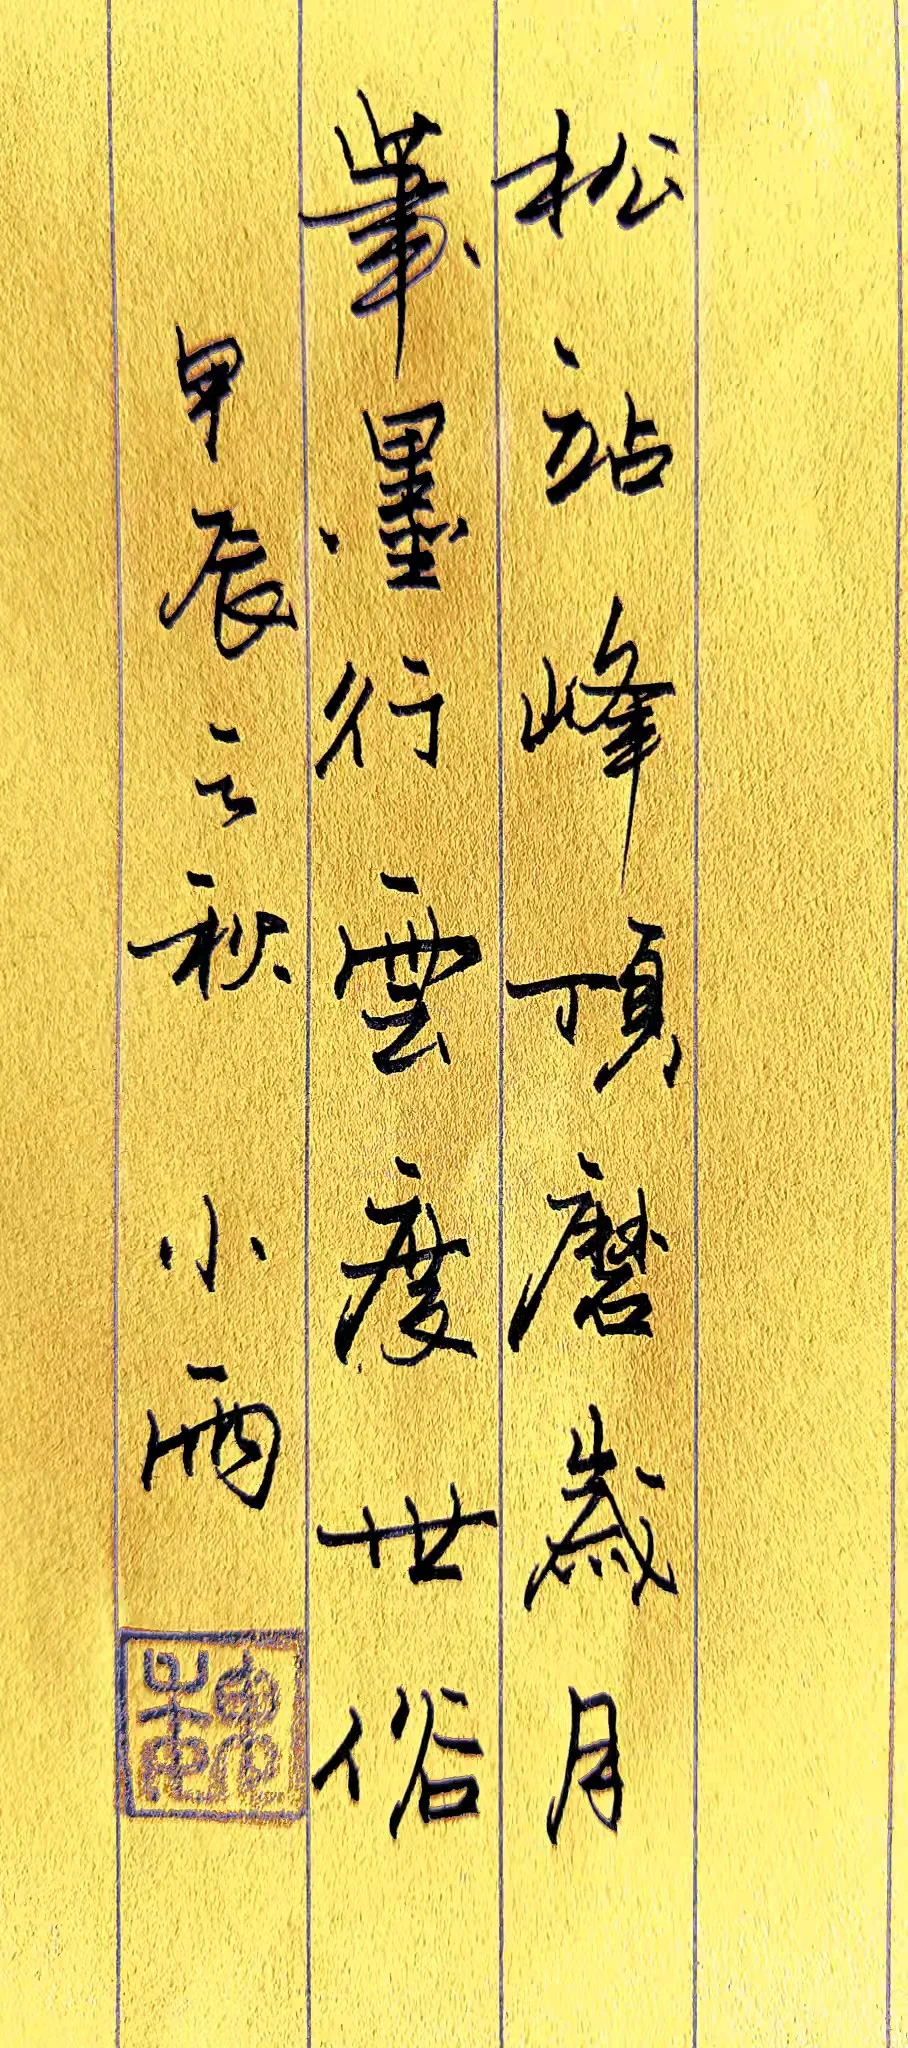 松站峰頂磨歲月
筆墨行雲度世俗
甲辰之秋 小雨